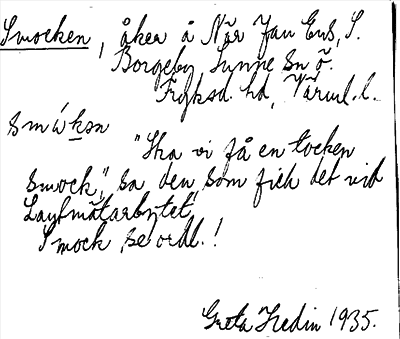 Smocken, åker å När Jan Ens, S.
Borgeby Sunne sn ö.
Fryksd. hd, Värml. l.
smóksn
"Ska vi få en tocken
smock", sa den, som fick det vid
Lantmätarbytet,
Smock, se ordl.!
Greta Hedin 1935.